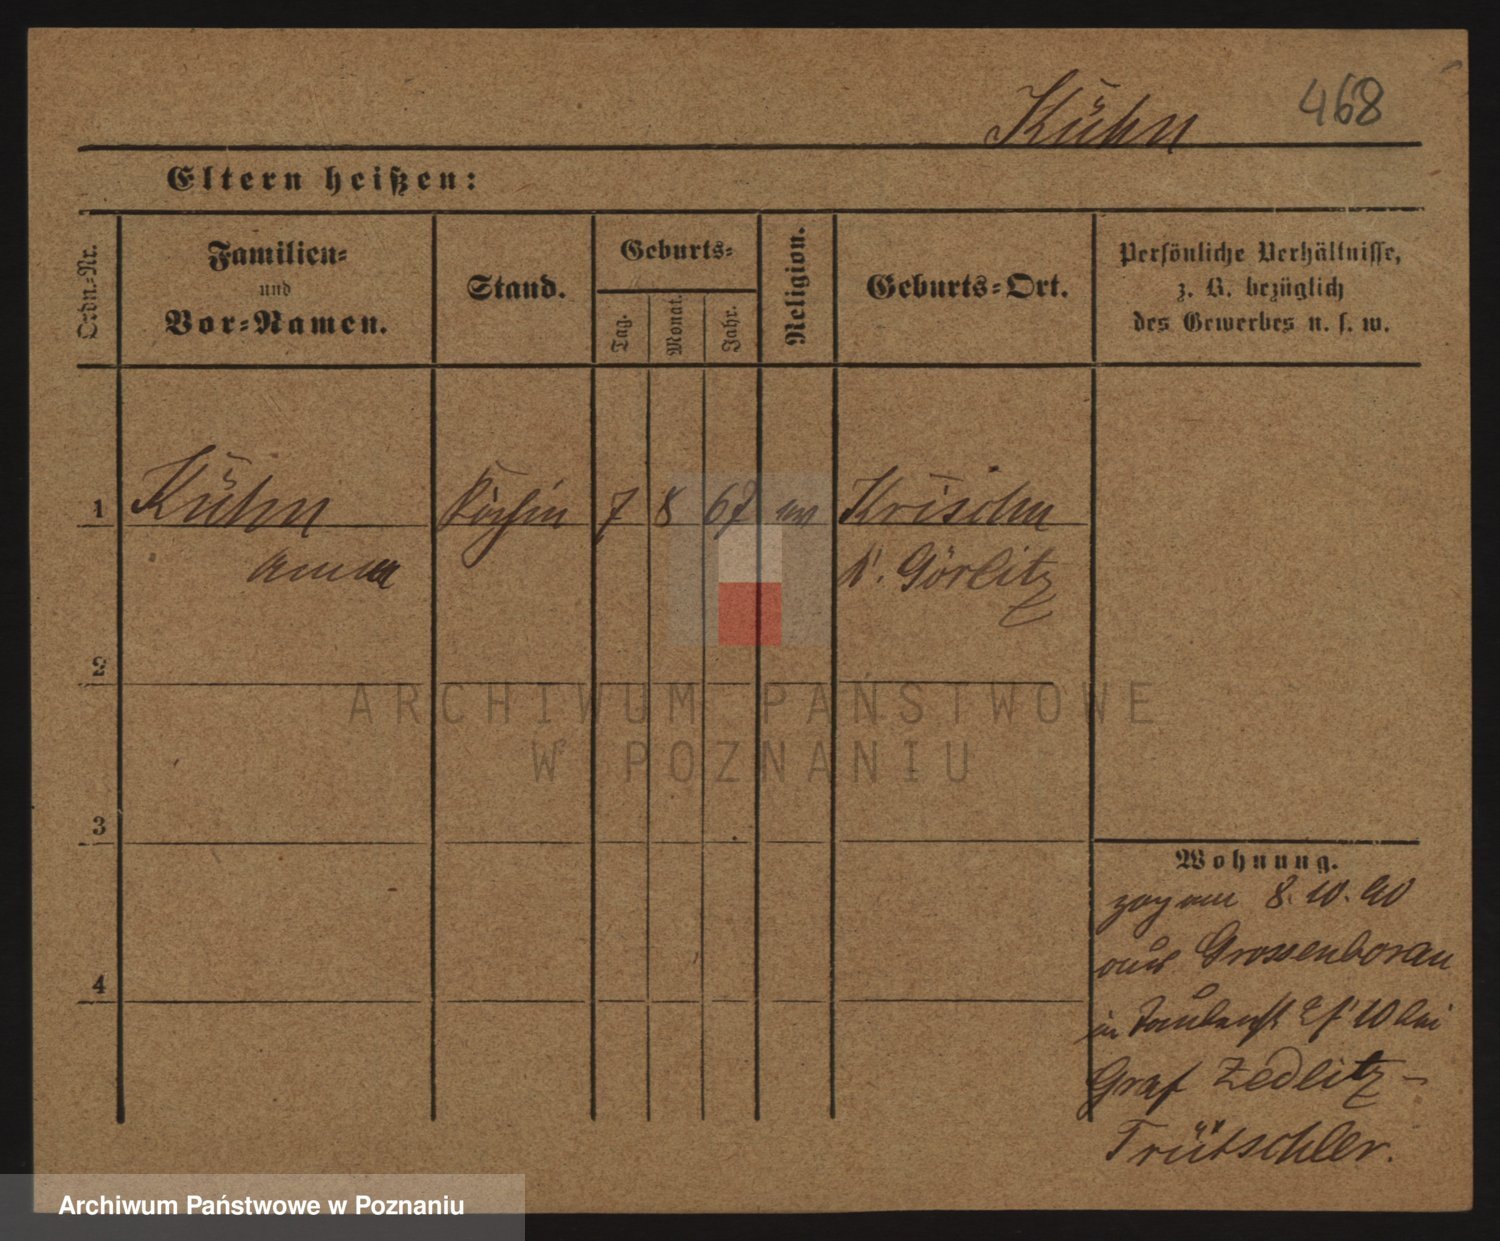 Kühn 468
Eltern heißen:
Ordn.-Nr.
Familien-
und
Vor-Namen.
Stand.
Geburts-
Tag.
Monat.
Jahr.
Religion.
Geburts-Ort.
Persönliche Verhältnisse,
z. B. bezüglich
des Gewerbes u. s. w.
1 Kühn Köchin 7 8 67 ev Krischa
Anna Kr. Görlitz
2
ARCHIWUM PAŃSTWOWE
W POZNANIU
3
Wohnung.
zog am 8. 10. 90
aus Grossenborau
4
in 10 bei
Graf Zedlitz-
Trütschler.
Archiwum Państwowe w Poznaniu